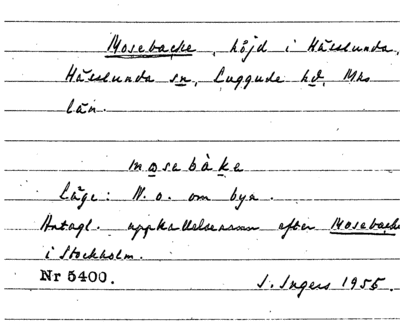 Mosebacke, höjd i Hässlunda,
Hässlunda sn, Luggude hd, Mhs
län.
mosebàke
Läge: N.o. om byn.
Antagl. uppkallelsenamn efter Mosebacke
i Stockholm.
Nr 5400.
I. Ingers 1955.